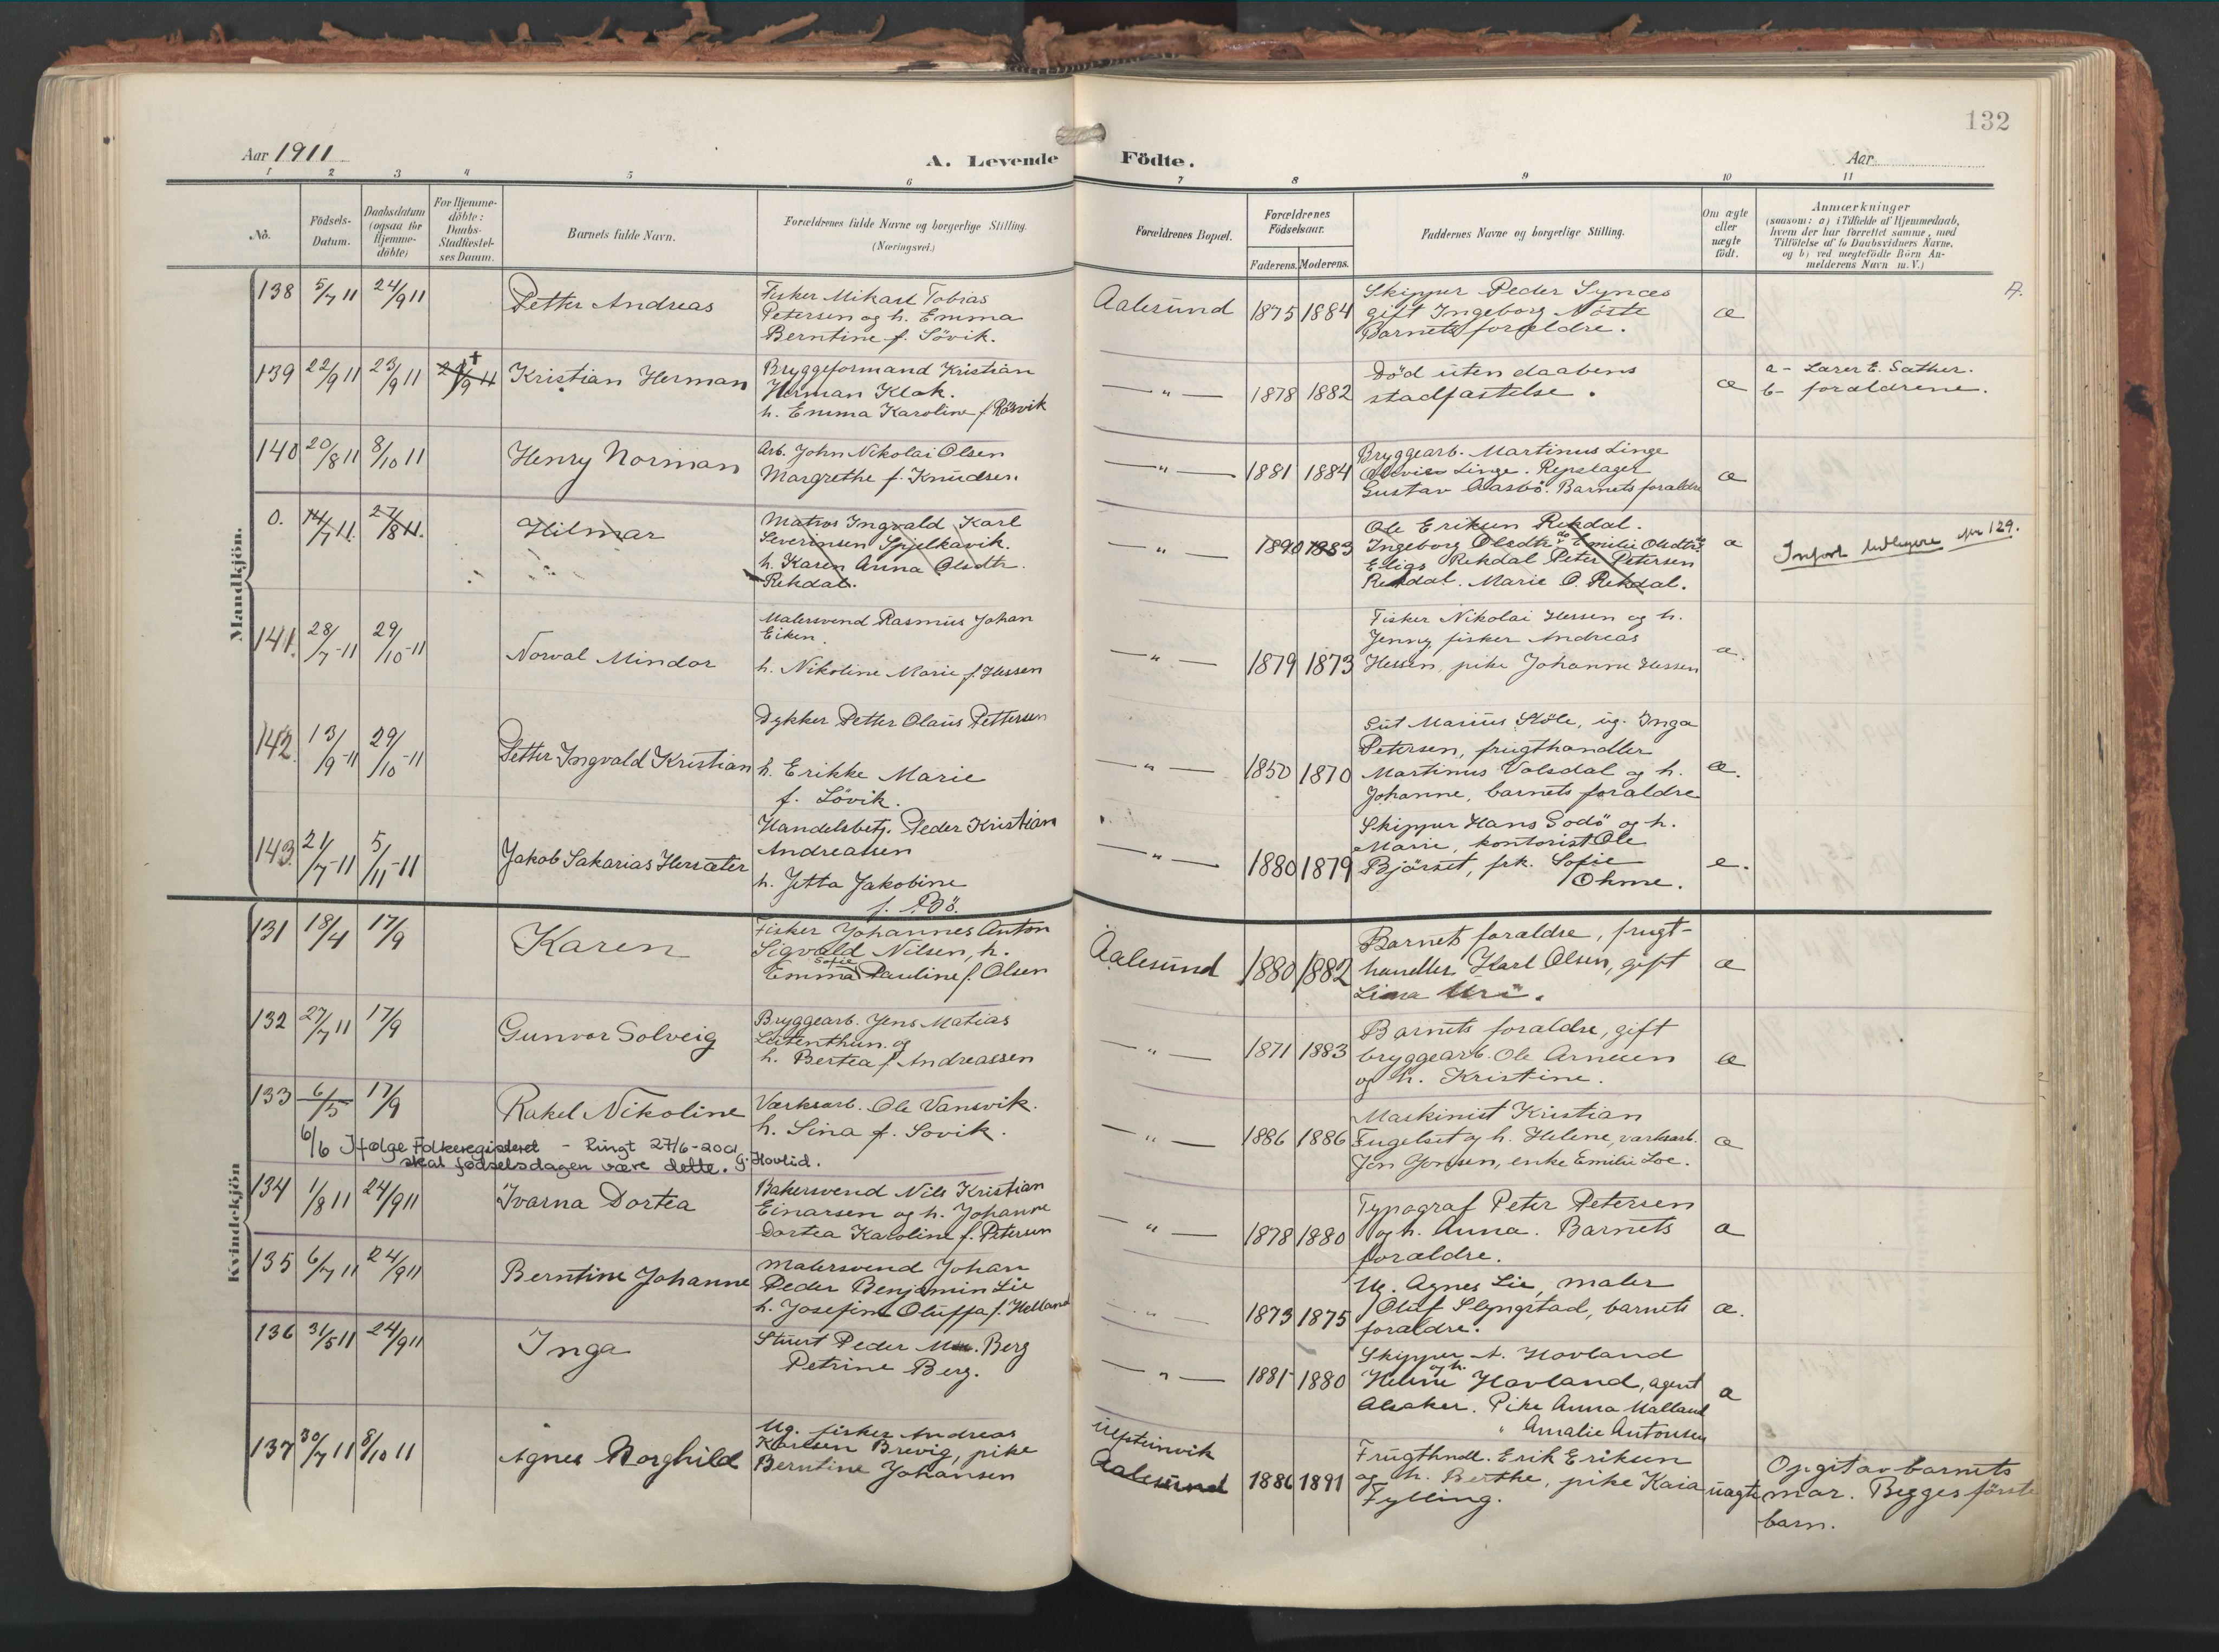 132
Aar 1911
A. Levende Födte.
Aar
1 2 3 4 5 6 7 8 9 10 11
No.
Födsels-
Datum.
Daabsdatum
(ogsaa för
Hjemme-
döbte)
For Hjemme-
döbte:
Daabs-
Stadfestel-
ses Datum.
Barnets fulde Navn.
Forældrenes fulde Navne og borgerlige Stilling.
(Næringsvei.)
Forældrenes Bopæl.
Forældrenes
Födselsaar.
Faderens. Moderens.
Faddernes Navne og borgerlige Stilling.
Om ægte
eller
uægte
født.
Anmærkninger
(saasom: a) i Tilfælde af Hjemmedaab,
hvem der har forrettet samme, med
Tilföielse af to Daabsvidners Navne,
og b) ved uægtefödte Börn An-
melderens Navn m. V.)
Mandkjön.
138 5/7 11 24/9 11 Petter Andreas
Fisker Mikael Tobias
Petersen og h. Emma
Berntine f. Sövik.
Aalesund 1875 1884
Skipper Peder Synces
gift Ingeborg Nöste
Barnets forældre.
æ
139 22/9 11 23/9 11 Kristian Herman
Bryggeformand Kristian
Herman Klok.
h. Emma Karoline f. Rösvik
— " — 1878 1882
Död uten daabens
stadfæstelse.
æ
a - Lærer E. Sæther.
b - forældrene.
140 20/8 11 8/10 11 Henry Norman
Arb. John Nikolai Olsen
Margrethe f. Knudsen.
— " — 1881 1884
Bryggearb. Martinus Linge
Linge. Repslager
Gustav Aasbö. Barnets forældre
æ
0. 14/7 11. 27/8 11. Hilmar
Matros Ingvald Karl
Severinsen Spjelkavik.
h. Karen Anna Olsdtr.
Rekdal.
— " — 1890 1883
Ole Eriksen Rekdal.
Ingeborg Olsdtr. Emilie Olsdtr.
Elias Rekdal Peter Petersen
Rekdal. Marie O. Rekdal.
æ
Infört tidligere nr 129.
141. 28/7-11 29/10-11 Norval Mindor
Malersvend Rasmus Johan
Eiken.
h. Nikoline Marie f. Hessen
— " — 1879 1873
Fisker Nikolai Hessen og h.
Jenny, fisker Andreas
Hessen, pike Johanne Hessen
æ.
142. 13/9-11 29/10-11 Petter Ingvald Kristian
Dykker Petter Olaus Pettersen
h. Erikke Marie
f. Lövik.
— " — 1850 1870
Gut Marius Sköle, ug. Inga
Petersen, frugthandler
Martinus Volsdal og h.
Johanne, barnets forældre
æ.
143. 21/7-11 5/11-11 Jakob Sakarias Hersæter
Handelsbetj. Peder Kristian
Andreassen
h. Jetta Jakobine
f. Bö.
— " — 1880 1879
Skipper Hans Godö og h.
Marie, kontorist Ole
Björset, frk. Sofie
Ohme.
e.
Kvindekjön
131 18/4 17/9 Karen
Fisker Johannes Anton
Sigvald Nilsen, h.
Sofie
Emma Pauline f. Olsen
Aalesund 1880 1882
Barnets forældre, frugt-
handler Karl Olsen, gift
Lina Uri.
æ
132 27/7 11 17/9 Gunvor Solveig
Bryggearb. Jens Matias
Leitenthun. og
h. Bertea f. Andreassen
— " — 1871 1883
Barnets forældre, gift
bryggearb. Ole Arnesen
og h. Kristine.
æ
133 6/5 17/9 Rakel Nikoline
Værksarb. Ole Vansvik.
h. Sina f. Sövik.
— " — 1886 1886
Maskinist Kristian
Fugelset og h. Helene, værksarb.
Jon Jonsen, enke Emilie Loe.
æ
6/6 Ifølge Folkeregisteret - Ringt 27/6-2001
skal fødselsdagen være dette. G. Hovlid.
134 1/8 11 24/9 11 Ivarna Dortea
Bakersvend Nils Kristian
Einarsen og h. Johanne
Dortea Karoline f. Petersen
— " — 1878 1880
Typograf Peter Petersen
og h. Anna. Barnets
forældre.
æ
135 6/7 11 24/9 11 Berntine Johanne
Malersvend Johan
Peder Benjamin Lie
h. Josefine Oluffa f. Helland
— " — 1873 1875
Ug. Agnes Lie, maler
Oluf Slyngstad, barnets
forældre.
æ.
136 31/5 11 24/9 11 Inga
Stuert Peder Berg
Petrine Berg.
— " — 1881 1880
Skipper A. Hovland
og h.
Helene Hovland, agent
Alsaker. Pike Anna Malland
" Amalie Antonsen
æ
137 30/7 11 8/10 11 Agnes Borghild
Ug. fisker Andreas
Karlsen Brevig, pike
Berntine Johansen
Ulsteinvik
Aalesund 1886 1891
Frugthndl. Erik Eriksen
og h. Berthe, pike Kaia
Fylling.
uægte
Opgit av barnets
mor. Begges förste
barn.